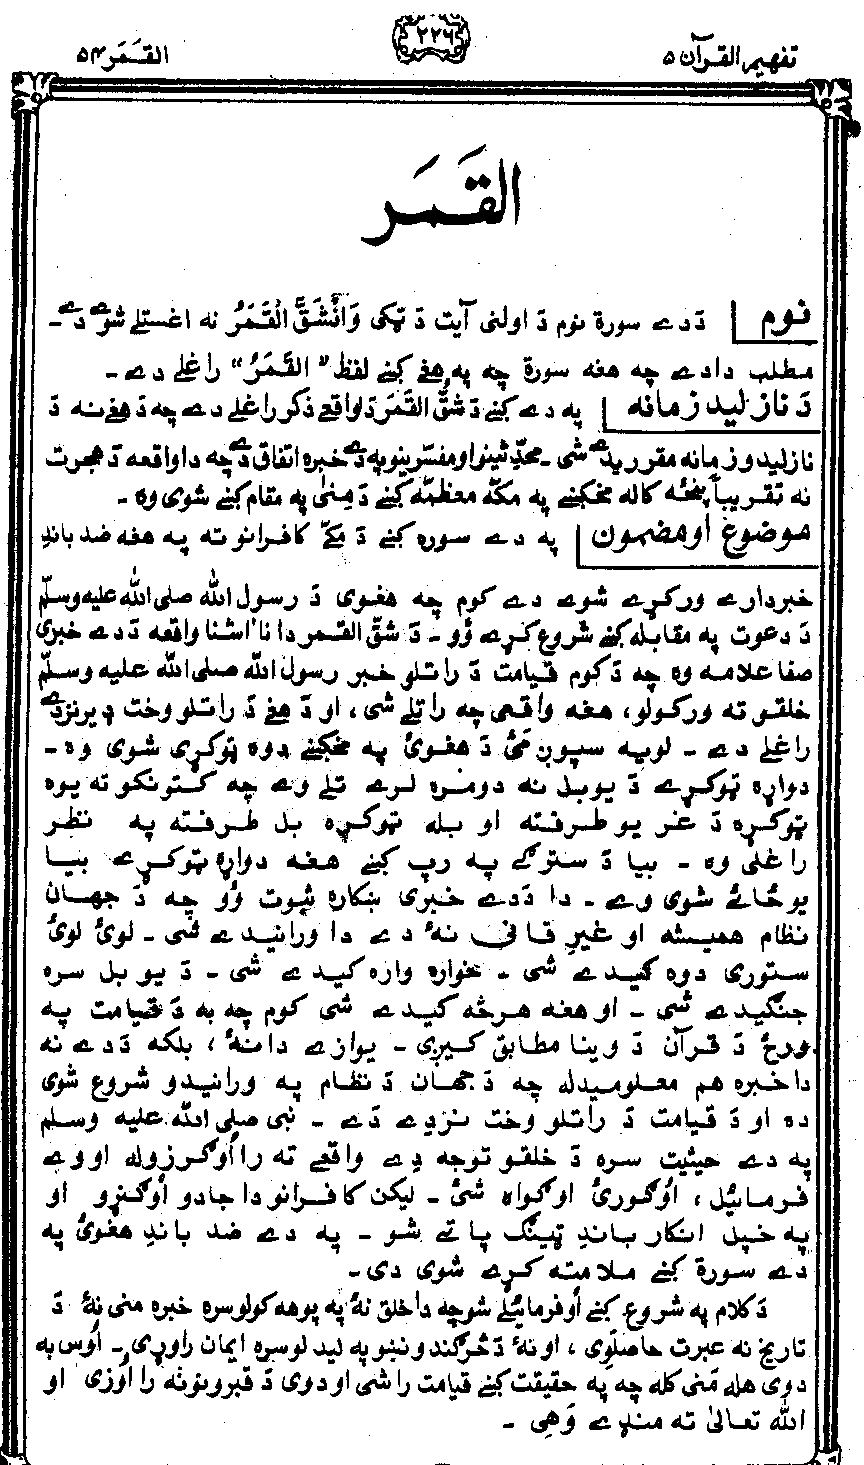 تفهيم القرآن ۵
۲۲۶
القَمَر ۵۴
القَمَر
نوم دَ دے سورة نوم دَ اولنی آیت دَ ټکی وَانْشَقَّ الْقَمَرُ نه اغستلے شوے دے۔
مطلب دادے چه هغه سورة چه په هغے کښے لفظ "القَمَرُ" راغلے دے۔
دَ نازلیدو زمانه په دے کښے دَ شقُّ القَمَر دَ واقعے ذکر راغلے دے چه دَ هغے نه دَ
نازلیدو زمانه مقرریدے شی۔ محدّثینو او مفسّرینو په دے خبره اتفاق دے چه دا واقعه دَ هجرت
نه تقریباً پنځه کاله مخکښے په مکّه معظمّه کښے دَ مِنیٰ په مقام کښے شوی وه۔
موضوع اَو مضمون په دے سوره کښے دَ مکّے کافرانو ته په هغه ضد باندِ
خبردارے ورکړے شوے دے کوم چه هغوی دَ رسول الله صلی الله علیه وسلّم
دَ دعوت په مقابله کښے شروع کړے ؤو۔ دَ شقّ القمر دا نا اشنا واقعه دَ دے خبری
صفا علامه وه چه دَ کوم قیامت دَ راتلو خبر رسول الله صلی الله علیه وسلّم
خلقو ته ورکولو، هغه واقعی چه راتلے شی، او دَ هغے دَ راتلو وخت ډیر نزدے
راغلے دے۔ لویه سپوږمَیْ دَ هغویْ په مخکښے دوه ټوکړی شوی وه۔
دواړه ټوکړے دَ یو بل نه دومره لرے تلے وے چه کتونکو ته یوه
ټوکره دَ غر یو طرفته او بله ټوکره بل طرفته په نظر
راغلی وه۔ بیا دَ سترگے په رپ کښے هغه دواړه ټوکړے بیا
یوځائے شوی وے۔ دا دَدے خبری ښکاره ثبوت ؤو چه دَ جهان
نظام همیشه او غیرِ فانی نهٔ دے دا ورانیدے شی۔ لویْ لویْ
ستوری دوه کیدے شی۔ خواره واره کیدے شی۔ دَ یو بل سره
جنگیدے شی۔ او هغه هرڅه کیدے شی کوم چه به دَ قیامت په
ورځ دَ قرآن دَ وینا مطابق کیږی۔ یوازے دا نهٔ، بلکه دَدے نه
دا خبره هم معلومیدله چه دَ جهان دَ نظام په ورانیدو شروع شوی
ده او دَ قیامت دَ راتلو وخت نزدِے دَے۔ نبی صلی الله علیه وسلم
په دے حیثیت سره دَ خلقو توجه دِے واقعے ته را اُوگرزوله او وے
فرمائیل، اُوگوریْ او گواه شیْ۔ لیکن کافرانو دا جادو اُوگنړو او
په خپل انکار باندِ ټینگ پاتے شو۔ په دے ضد باندِ هغویْ په
دے سورة کښے ملامته کړے شوی دی۔
دَ کلام په شروع کښے اُو فرمائیلے شو چه دا خلق نهٔ په پوهه کولو سره خبره منی نهٔ دَ
تاریخ نه عبرت حاصلوِی، او نهٔ دَ څرگند و نښو په لیدلو سره ایمان راوړی۔ اُوس به
دوی هله مَنی کله چه په حقیقت کښے قیامت راشی او دوی دَ قبرونونه را اُوزی او
الله تعالیٰ ته منډے وَهِی۔